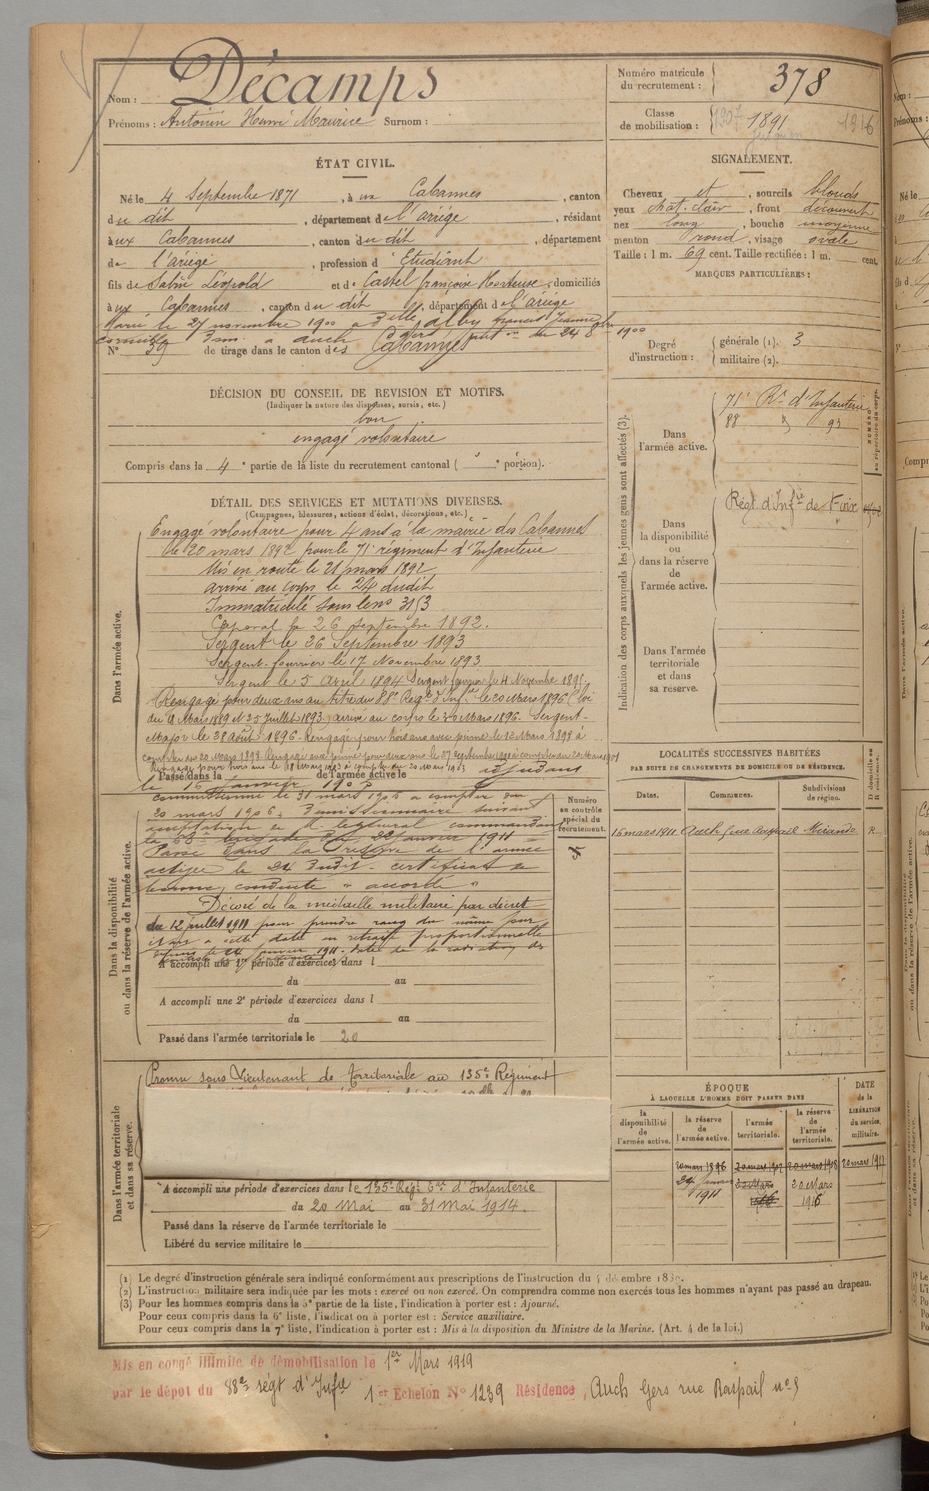 Nom : Décamps
Prénoms : Antonin Henri Maurice Surnom :
Numéro matricule du recrutement : 378
Classe de mobilisation : 1907 1891 1916
ÉTAT CIVIL.
Né le 4 Septembre 1871, à ux Cabannes, canton
du dit, département de l'ariège, résidant
à ux Cabannes, canton du dit, département
de l'ariège, profession d' Etudiant
fils de Léopold et de Castel françoise, domiciliés
à ux Cabannes, canton du dit, département de l'ariège
Marié le 27 novembre 1900 à
à auch 1900
N° 39 de tirage dans le canton des Cabannes
SIGNALEMENT.
Cheveux et, sourcils blonds
yeux chat. clair, front découvert
nez long, bouche moyenne
menton rond, visage ovale
Taille : 1 m. 69 cent. Taille rectifiée : 1 m. cent.
MARQUES PARTICULIÈRES :
Degré d'instruction : générale (1). 3
militaire (2).
DÉCISION DU CONSEIL DE REVISION ET MOTIFS.
(Indiquer la nature des dispenses, sursis, etc.)
bon
engagé volontaire
Compris dans la 4e partie de la liste du recrutement cantonal ( e portion).
Indication des corps auxquels les jeunes gens sont affectés (3).
Dans l'armée active.
71e Rt d'Infanterie
88 93
NUMÉRO au répertoire du corps.
Dans la disponibilité ou dans la réserve de l'armée active.
Régt d'Infie de Foix
Dans l'armée territoriale et dans sa réserve.
DÉTAIL DES SERVICES ET MUTATIONS DIVERSES.
(Campagnes, blessures, actions d'éclat, décorations, etc.)
Dans l'armée active.
Engagé volontaire pour 4 ans à la mairie des Cabannes
le 20 mars 1892 pour le 71e régiment d'Infanterie
Mis en route le 21 mars 1892
arrivé au corps le 24 dudit
Immatriculé sous le no 3153
Caporal le 26 septembre 1892.
Sergent le 26 Septembre 1893
Sergent-fourrier le 17 Novembre 1893
Sergent le 5 Avril 1894 Sergent fourrier le 4 Novembre 1895.
Rengagé pour deux ans au titre du 88e Régt d'Infie le 20 Mars 1896 (loi
du 18 Mars 1889 et 25 Juillet 1893) arrivé au corps le 30 Mars 1896. Sergent-
Major le 28 août 1896. Rengagé pour trois ans avec prime le 12 Mars 1898 à
compter du 20 Mars 1898. Rengagé avec prime pour deux ans le 27 Septembre à compter du 20 Mars 1901
Rengagé pour trois ans le 18 Mars 1903 à compter du 20 Mars 1903 adjudant
Passé dans la de l'armée active le
le 16 janvier
Dans la disponibilité ou dans la réserve de l'armée active.
commissionné le 31 mars 1906 à compter du
20 mars 1906. Démissionnaire suivant
acceptation de M. le général commandant
la brigade du 22 janvier 1911
Passé dans la réserve de l'armée
active le 24 dudit. certificat de
bonne conduite "accordé"
Décoré de la médaille militaire par décret
du 12 juillet 1911 pour prendre rang du même jour
à cette date en retraite proportionnelle
janvier 1911. date de la radiation des
A accompli une 1re période d'exercices dans l
du au
A accompli une 2e période d'exercices dans l
du au
Passé dans l'armée territoriale le 20
Numéro au contrôle spécial du recrutement.
LOCALITÉS SUCCESSIVES HABITÉES
PAR SUITE DE CHANGEMENTS DE DOMICILE OU DE RÉSIDENCE.
Dates. Communes. Subdivisions de région. D domicile ou R résidence.
16 mars 1911 Auch, rue Raspail Mirande R
Dans l'armée territoriale et dans sa réserve.
Promu sous Lieutenant de territoriale au 135e Régiment
A accompli une période d'exercices dans le 135e Régt Ter d'Infanterie
du 20 Mai au 31 Mai 1914.
Passé dans la réserve de l'armée territoriale le
Libéré du service militaire le
ÉPOQUE
À LAQUELLE L'HOMME DOIT PASSER DANS
la disponibilité de l'armée active.
la réserve de l'armée active.
l'armée territoriale.
la réserve de l'armée territoriale.
DATE de la LIBÉRATION du service militaire.
20 mars 1896 20 mars 20 mars 1908 20 mars 1917
24 janvier 1911 20 Mars 1916
(1) Le degré d'instruction générale sera indiqué conformément aux prescriptions de l'instruction du 4 décembre
(2) L'instruction militaire sera indiquée par les mots : exercé ou non exercé. On comprendra comme non exercés tous les hommes n'ayant pas passé au drapeau.
(3) Pour les hommes compris dans la 5e partie de la liste, l'indication à porter est : Ajourné.
Pour ceux compris dans la 6e liste, l'indication à porter est : Service auxiliaire.
Pour ceux compris dans la 7e liste, l'indication à porter est : Mis à la disposition du Ministre de la Marine. (Art. 4 de la loi.)
Mis en congé illimité de démobilisation le 1er Mars 1919
par le dépôt du 88e régt d'Infie 1er Echelon N° 1239 Résidence, Auch Gers rue Raspail no 9